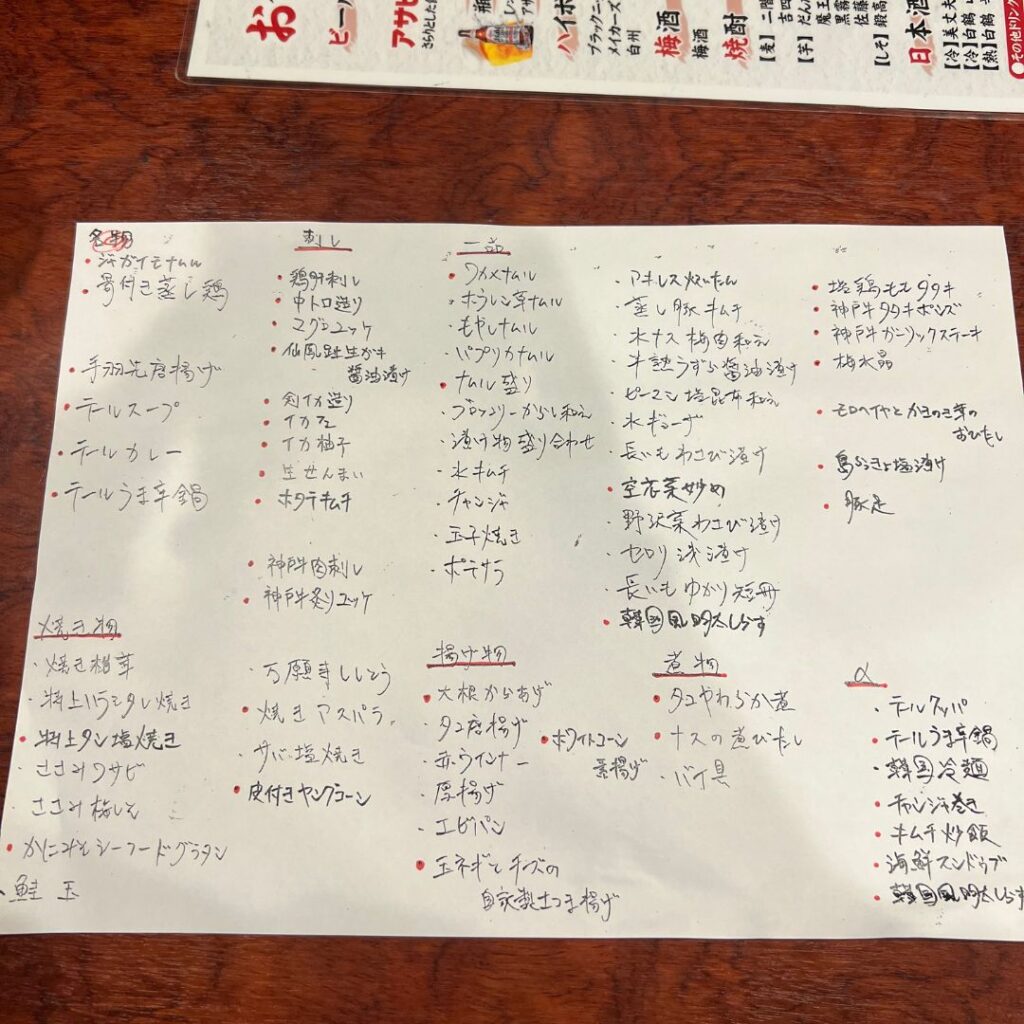 お
ビール
アサヒ
ハイボ
ブラックニッ
メイカーズ
白州
梅酒
梅酒
焼酎
【麦】二階
吉四
【芋】だん
魔王
黒霧
佐藤
【しそ】鍛高
日本酒
【冷】美丈夫
【冷】白鶴
【熱】白鶴
●その他ドリンク
名物
・骨付き蒸し鶏
・手羽先唐揚げ
・テールスープ
・テールカレー
・テールうま辛鍋
刺し
・中トロ造り
・マグロユッケ
醤油漬け
・剣イカ造り
・イカフェ
・イカ柚子
・生せんまい
・ホタテキムチ
・神戸牛肉刺し
・神戸牛炙りユッケ
一品
・ワカメナムル
・ホウレン草ナムル
・もやしナムル
・パプリカナムル
・ナムル盛り
・ブロッコリーからし和え
・漬け物盛り合わせ
・水キムチ
・チャンジャ
・玉子焼き
・ポテサラ
・アキレス煮こたん
・蒸し豚キムチ
・水ナス梅肉和え
・半熟うずら醤油漬け
・ピーマン塩昆布和え
・水ギョーザ
・長いもわさび漬け
・空芯菜炒め
・野沢菜わさび漬け
・セロリ浅漬け
・長いもゆかり短冊
・韓国風明太しらす
・塩鶏ももタタキ
・神戸牛タタキポンズ
・神戸牛ガーリックステーキ
・梅水晶
・モロヘイヤとかきのき茸の
おひたし
・島らっきょ塩漬け
・豚足
焼き物
・焼き椎茸
・特上ハラミタレ焼き
・特上タン塩焼き
・ささみワサビ
・ささみ梅しそ
・かにみそシーフードグラタン
・鮭玉
・万願寺ししとう
・焼きアスパラ
・サバ塩焼き
・皮付きヤングコーン
揚げ物
・大根からあげ
・タコ唐揚げ
・赤ウインナー
・厚揚げ
・エビパン
・玉ネギとチーズの
自家製さつま揚げ
・ホワイトコーン
素揚げ
煮物
・タコやわらか煮
・ナスの煮びたし
・バイ貝
〆
・テールクッパ
・テールうま辛鍋
・韓国冷麺
・チャンジャ巻き
・キムチ炒飯
・海鮮スンドゥブ
・韓国風明太しらす